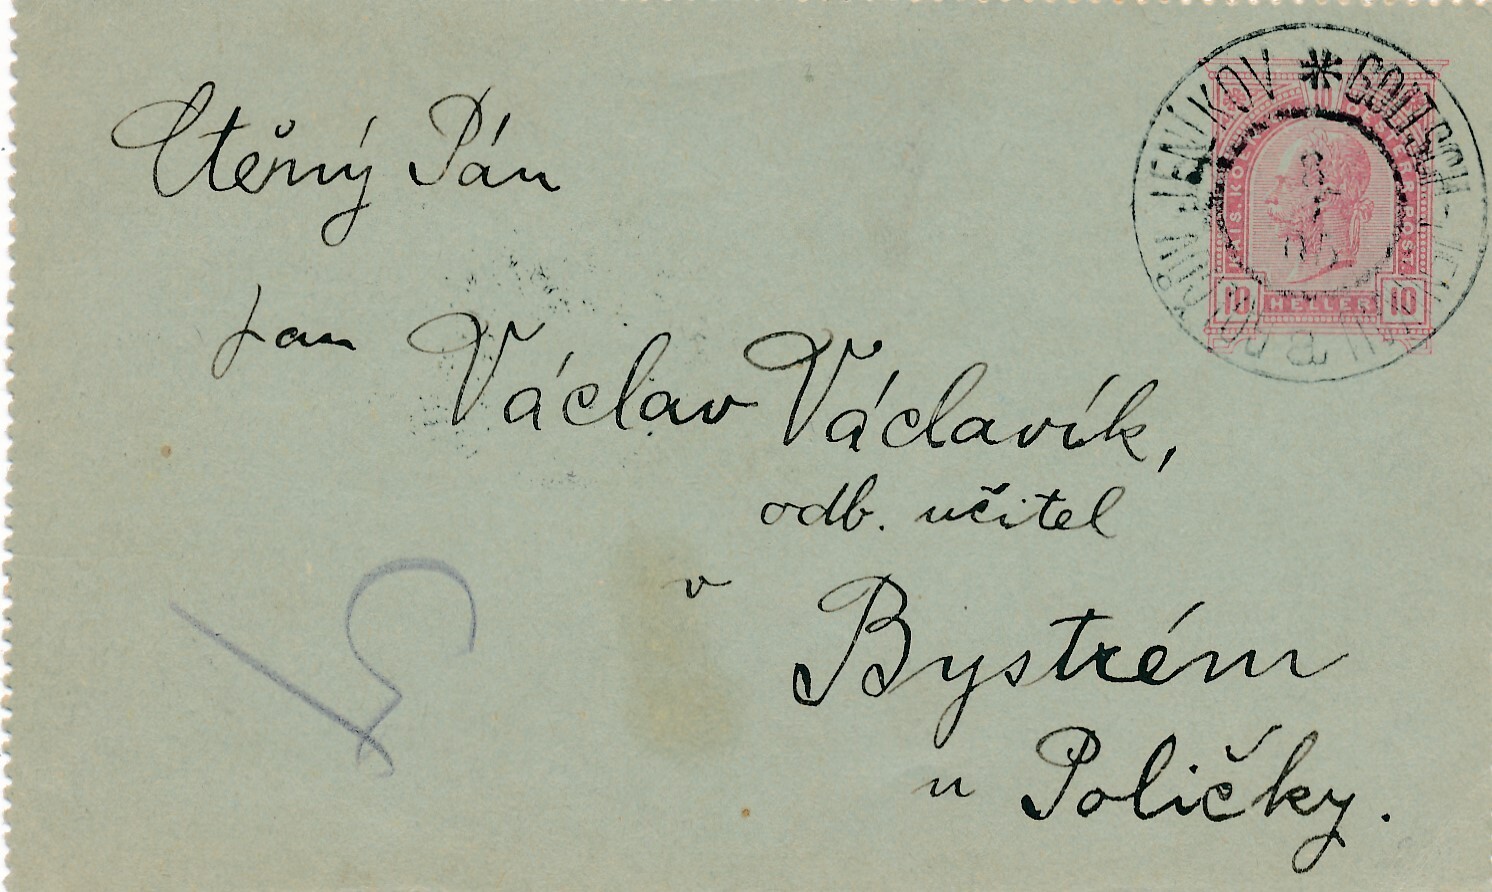 Ctěný Pán
pan Václav Václavík,
odb. učitel
v Bystrém
u Poličky.
JENÍKOV * GOLTSCH-JENIKAU
8
10
KAIS. KÖN. OESTERR. POST
10 HELLER 10
5